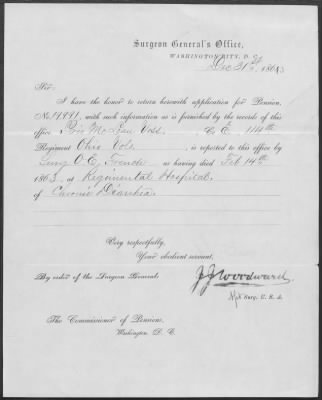 Surgeon General's Office,
WASHINGTON CITY, D. C.
Dec 31st, 1863
Sir:
I have the honor to return herewith application for Pension,
No. 11991, with such information as is furnished by the records of this
office. McLean Co. E. 114th
Regiment Ohio Vols., is reported to this office by
Surg O. E. French as having died Feb 14th
1863, at Regimental Hospital,
of Chronic Diarrhea
Very respectfully,
Your obedient servant,
By order of the Surgeon General:
J J Woodward
Surg. U. S. A.
The Commissioner of Pensions,
Washington, D. C.